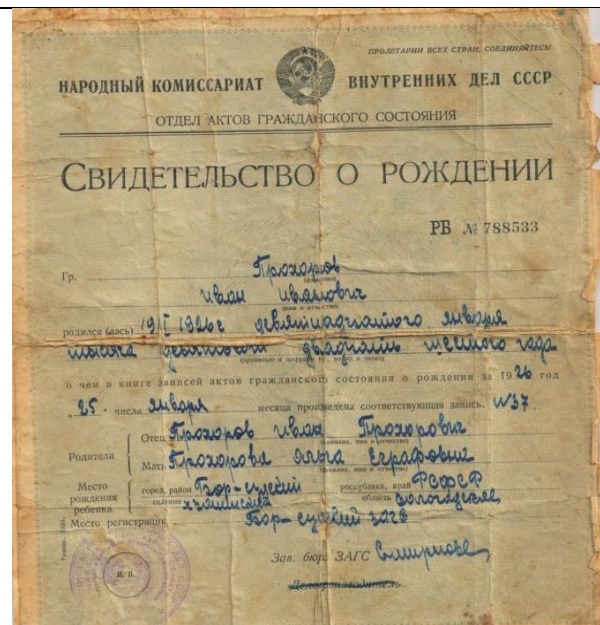 ПРОЛЕТАРИИ ВСЕХ СТРАН, СОЕДИНЯЙТЕСЬ
НАРОДНЫЙ КОМИССАРИАТ ВНУТРЕННИХ ДЕЛ СССР
ОТДЕЛ АКТОВ ГРАЖДАНСКОГО СОСТОЯНИЯ
СВИДЕТЕЛЬСТВО О РОЖДЕНИИ
РБ № 788533
Гр. Прохоров
(фамилия)
Иван Иванович
(имя и отчество)
родился (лась) 19/I 1926г девятнадцатого января
тысяча девятьсот двадцать шестого года
(прописью и цифрами год, месяц и число)
о чем в книге записей актов гражданского состояния о рождении за 1926 год
25 числа января месяца произведена соответствующая запись. N37.
Родители
Отец Прохоров Иван Прохорович
(фамилия, имя и отчество)
Мать Прохорова Ольга Евграфовна
(фамилия, имя и отчество)
Место рождения ребенка
город, район Бор-судский республика, край РСФСР
селение область Вологодская
Место регистрации Бор-судский загс
М. П.
Зав. бюро ЗАГС Смирнова
Делопроизводитель